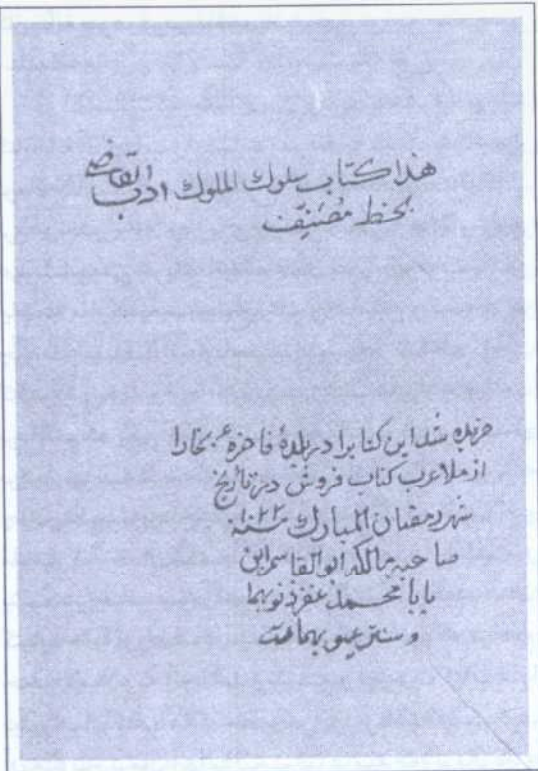 هذا كتاب سلوك الملوك ادب القاضي
بخط مصنف
خريده شد اين كتابرا در بلدهٔ فاخرهٔ بخارا
از ملا عرب كتاب فروش در تاريخ
شهر رمضان المبارك سنة ۱۰۲۲
صاحبه مالكه ابو القاسم ابن
بابا محمد غفر ذنوبهما
وستر عيوبهما